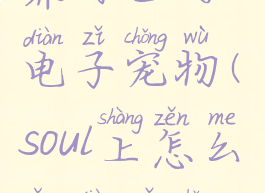 diàn zǐ chǒng wù
电子宠物(
shàng zěn me
soul上怎么